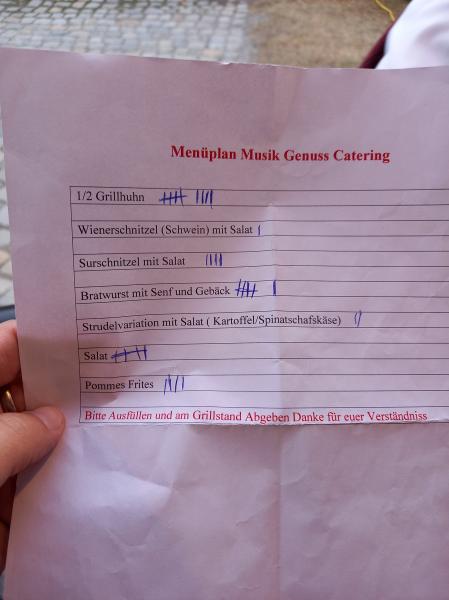 Menüplan Musik Genuss Catering
1/2 Grillhuhn
Wienerschnitzel (Schwein) mit Salat
Surschnitzel mit Salat
Bratwurst mit Senf und Gebäck
Strudelvariation mit Salat ( Kartoffel/Spinatschafskäse)
Salat
Pommes Frites
Bitte Ausfüllen und am Grillstand Abgeben Danke für euer Verständniss